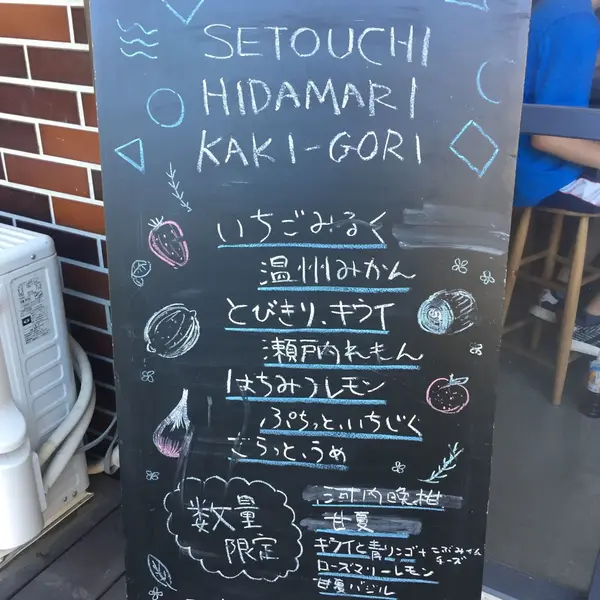 SETOUCHI
HIDAMARI
KAKI-GORI
いちごみるく
温州みかん
とびきり、キウイ
瀬戸内れもん
はちみつレモン
ぷちっと、いちじく
ごろっと、うめ
数量
限定
河内晩柑
甘夏
キウイと青リンゴ+
チーズ
ローズマリーレモン
甘夏バジル